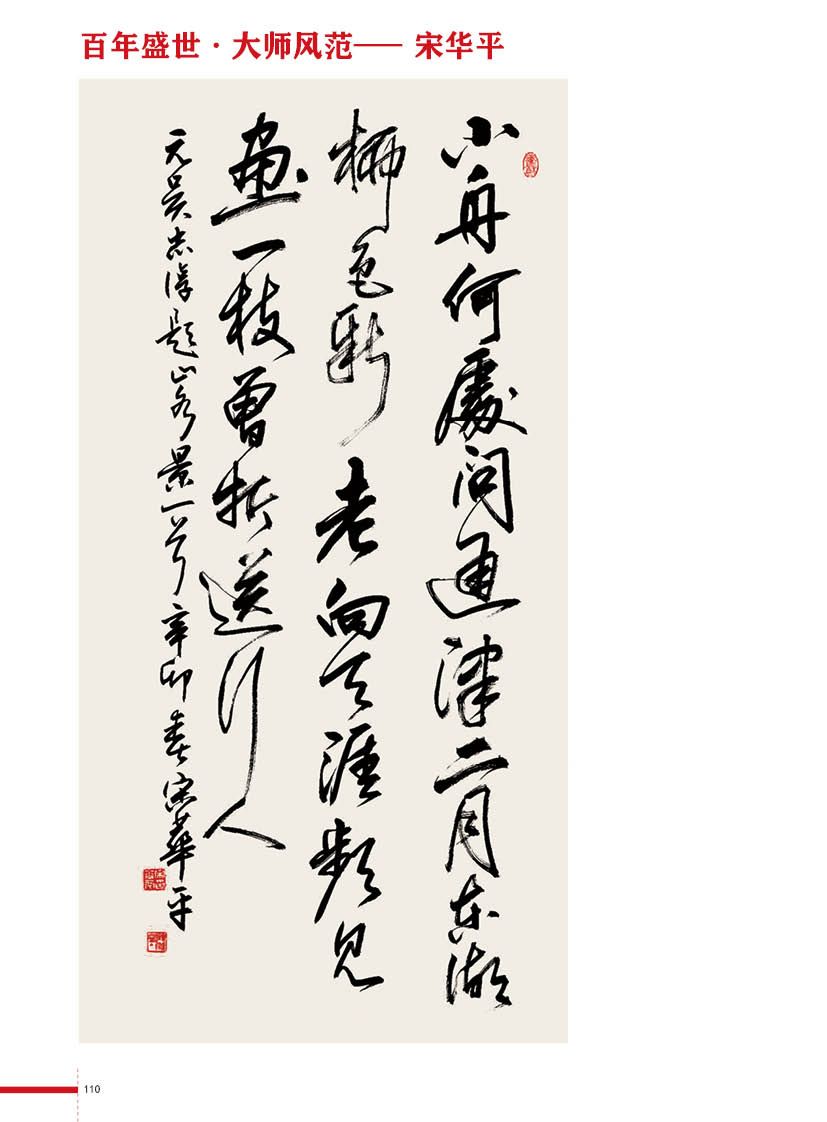 百年盛世·大师风范—— 宋华平
小舟何處问通津二月东湖
柳色新老向天涯频见
画一枝曾折送行人
元吴志淳题山水景一首辛卯春宋華平
110